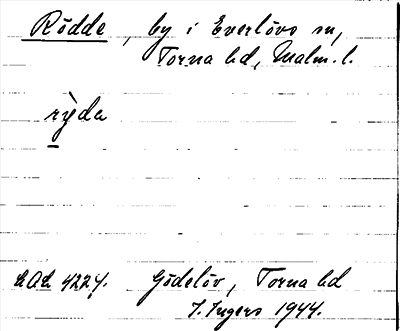 Rödde, by i Everlövs sn,
Torna hd, Malm. l.
rỳda
LAL 4227. Gödelöv, Torna hd
I. Ingers 1944.